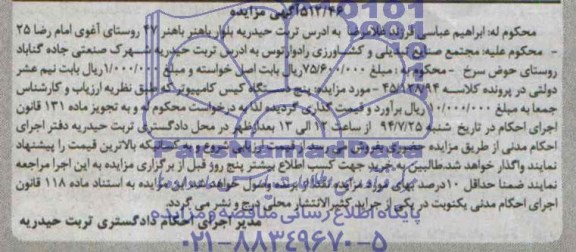 ۵۱۲/۴۶آگهی مزایده
محکوم له: ابراهیم عباسی فرزند غلامرضا به ادرس تربت حیدریه بلوار باهنر باهنر ۴۷ روستای آغوی امام رضا ۲۵
- محکوم علیه: مجتمع صنایع تبدیلی و کشاورزی رادوارتوس به ادرس تربت حیدریه شهرک صنعتی جاده گناباد
روستای حوض سرخ - محکوم به: مبلغ ۷۵/۶۰۰/۰۰۰ریال بابت اصل خواسته و مبلغ ۱/۰۰۰/۰۰۰ریال بابت نیم عشر
دولتی در پرونده کلاسه ۴۵/۱۲۸/۹۴ - مورد مزایده: پنج دستگاه کیس کامپیوتر که طبق نظریه ارزیاب و کارشناس
جمعا به مبلغ ۱۰/۰۰۰/۰۰۰ ریال برآورد و قیمت گذاری گردیده لذا به درخواست محکوم له و به تجویز ماده ۱۳۱ قانون
اجرای احکام در تاریخ شنبه ۹۴/۷/۲۵ از ساعت ۱۲ الی ۱۳ بعدازظهر در محل دادگستری تربت حیدریه دفتر اجرای
احکام مدنی از طریق مزایده حضوری بفروش می رسد از قیمت ارزیابی شروع و به کسانیکه بالاترین قیمت را پیشنهاد
نمایند واگذار خواهد شد.طالبین به خرید جهت کسب اطلاع بیشتر پنج روز قبل از برگزاری مزایده به این اجرا مراجعه
نمایند ضمنا حداقل ۱۰درصد بهای مورد مزایده نقدا از برنده وصول خواهد شد.این مزایده به استناد ماده ۱۱۸ قانون
اجرای احکام مدنی یکنوبت در یکی از جراید کثیرالانتشار محلی درج و نشر می گردد.
مدیر اجرای احکام دادگستری تربت حیدریه
پایگاه اطلاع رسانی مناقصه و مزایده
۰۲۱-۸۸۳۴۹۶۷۰-۵